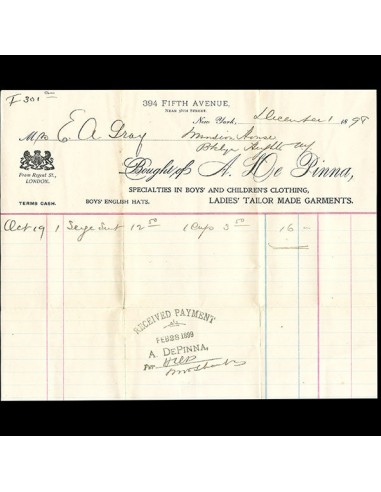 F. 301
394 FIFTH AVENUE,
NEAR 36TH STREET.
New York, December 1 1898
M rs E. A. Gray
Mansion House
Bklyn Heights
From Regent St.,
LONDON.
Bought of A. De Pinna,
SPECIALTIES IN BOYS' AND CHILDREN'S CLOTHING,
TERMS CASH. BOYS' ENGLISH HATS. LADIES' TAILOR MADE GARMENTS.
Oct 19 1 Serge Suit 12 50 1 Cap 3 50 16 –
RECEIVED PAYMENT
FEB 28 1899
A. DEPINNA,
PER